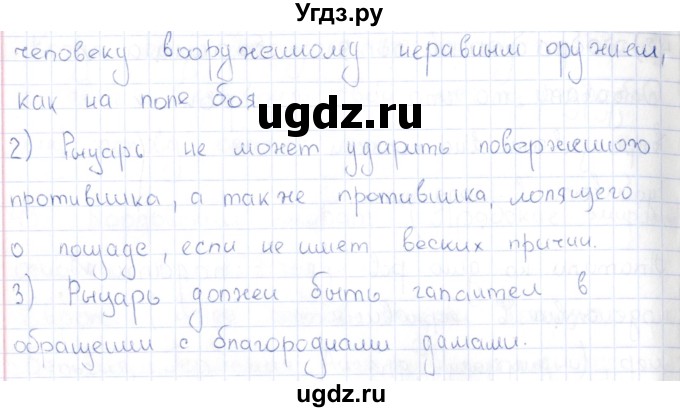 Угдз.ру
человеку вооруженному неравным оружием,
как на поле боя
ugdz.ru
2) Рыцарь не может ударить поверженного
противника, а также противника, молящего
о пощаде, если не имеет веских причин.
3) Рыцарь должен быть галантен в
обращении с благородными дамами.
ugdz.ru